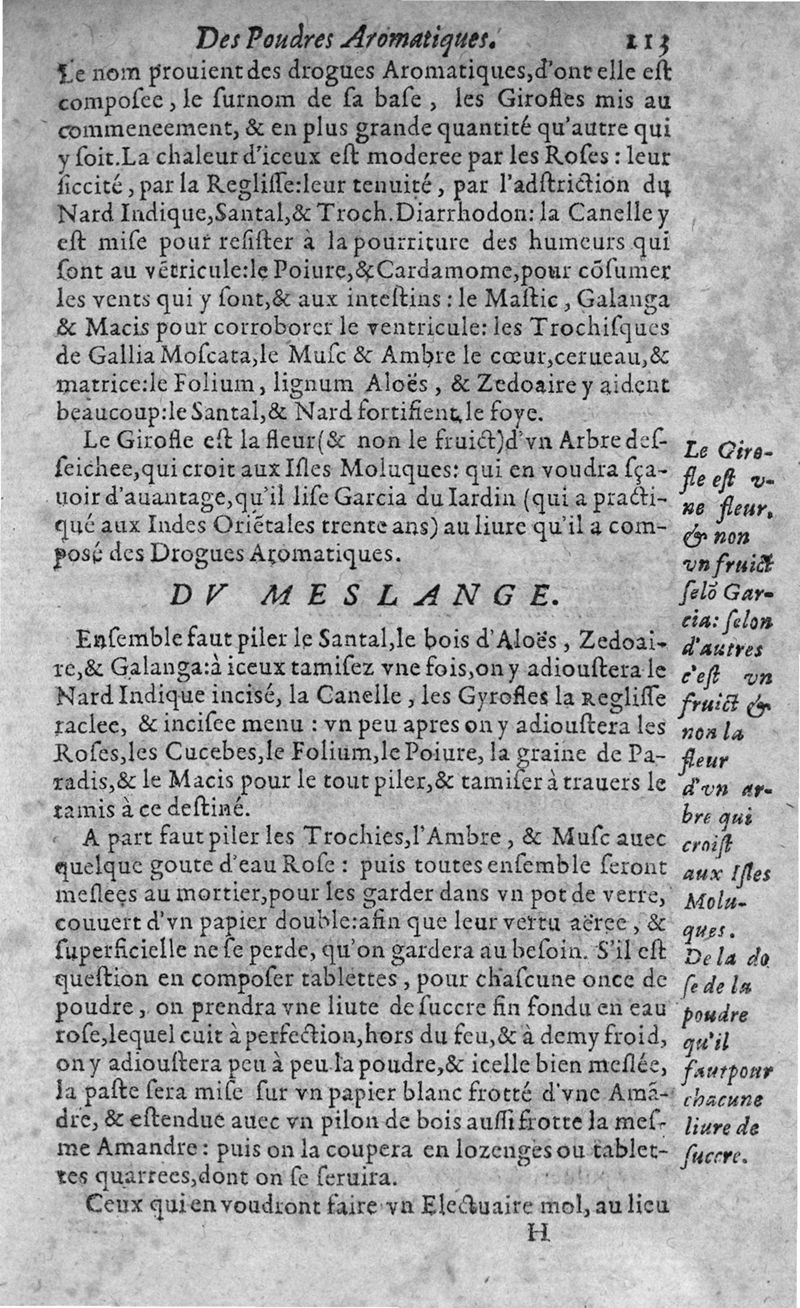 Des Poudres Aromatiques. 113
Le nom prouient des drogues Aromatiques,d'ont elle eſt
compoſee, le ſurnom de ſa baſe, les Girofles mis au
commeneement, & en plus grande quantité qu'autre qui
y ſoit.La chaleur d'iceux eſt moderee par les Roſes : leur
ſiccité, par la Regliſſe:leur tenuité, par l'adſtriction du
Nard Indique,Santal,& Troch.Diarrhodon: la Canelle y
eſt miſe pour reſiſter à la pourriture des humeurs qui
ſont au vẽtricule:le Poiure,& Cardamome,pour cõſumer
les vents qui y ſont,& aux inteſtins : le Maſtic, Galanga
& Macis pour corroborer le ventricule: les Trochiſques
de Gallia Moſcata,le Muſc & Ambre le cœur,cerueau,&
matrice:le Folium, lignum Aloës, & Zedoaire y aident
beaucoup:le Santal,& Nard fortifient le foye.
Le Girofle eſt la fleur(& non le fruict)d'vn Arbre deſ-
ſeichee,qui croit aux Iſles Moluques: qui en voudra ſça-
uoir d'auantage,qu'il liſe Garcia du Iardin (qui a practi-
qué aux Indes Oriẽtales trente ans) au liure qu'il a com-
poſé des Drogues Aromatiques.
DV MESLANGE.
Enſemble faut piler le Santal,le bois d'Aloës, Zedoai-
re,& Galanga:à iceux tamiſez vne fois,on y adiouſtera le
Nard Indique inciſé, la Canelle, les Gyrofles la Regliſſe
raclee, & inciſee menu : vn peu apres on y adiouſtera les
Roſes,les Cucebes,le Folium,le Poiure, la graine de Pa-
radis,& le Macis pour le tout piler,& tamiſer à trauers le
tamis à ce deſtiné.
A part faut piler les Trochies,l'Ambre, & Muſc auec
quelque goute d'eau Roſe : puis toutes enſemble ſeront
meſlees au mortier,pour les garder dans vn pot de verre,
couuert d'vn papier double:afin que leur vertu aëree, &
ſuperficielle ne ſe perde, qu'on gardera au beſoin. S'il eſt
queſtion en compoſer tablettes, pour chaſcune once de
poudre, on prendra vne liute de ſuccre fin fondu en eau
roſe,lequel cuit à perfection,hors du feu,& à demy froid,
on y adiouſtera peu à peu la poudre,& icelle bien meſlée,
la paſte ſera miſe ſur vn papier blanc frotté d'vne Amã-
dre, & eſtendue auec vn pilon de bois auſſi frotte la meſ-
me Amandre : puis on la coupera en lozenges ou tablet-
tes quarrees,dont on ſe ſeruira.
Ceux qui en voudront faire vn Electuaire mol, au lieu
H
Le Giro-
fle eſt v-
ne fleur,
& non
vn fruict
ſelõ Gar-
cia: ſelon
d'autres
c'eſt vn
fruict &
non la
fleur
d'vn ar-
bre qui
croiſt
aux Iſles
Molu-
ques.
De la do
ſe de la
poudre
qu'il
faut pour
chacune
liure de
ſuccre.